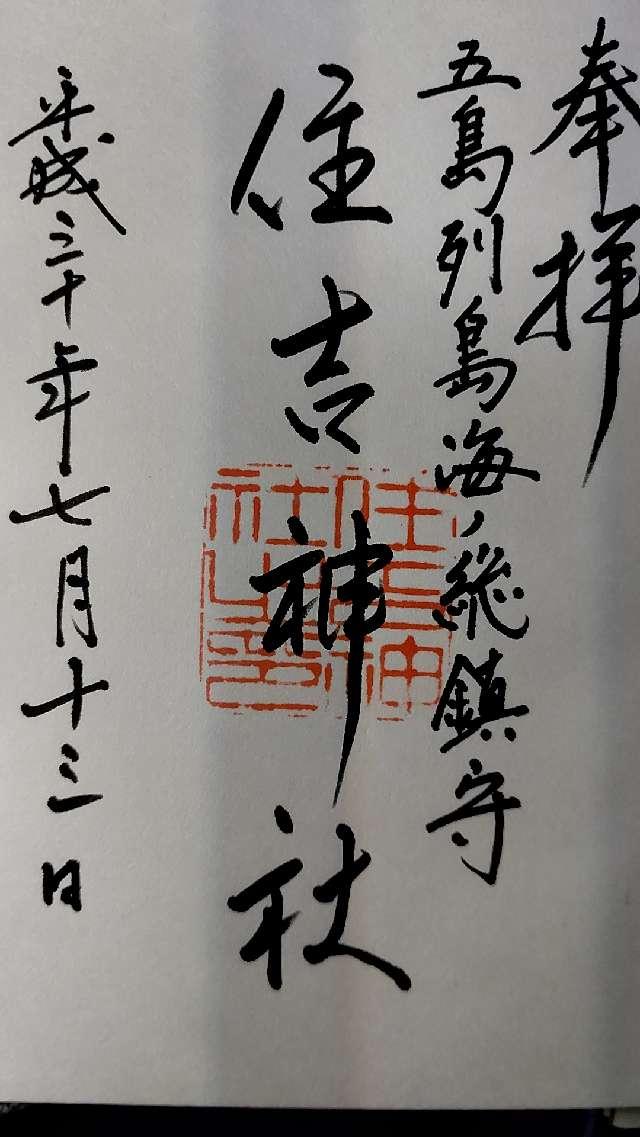 奉拝
五島列島海ノ総鎮守
住吉神社
住吉神社之印
平成三十年七月十三日